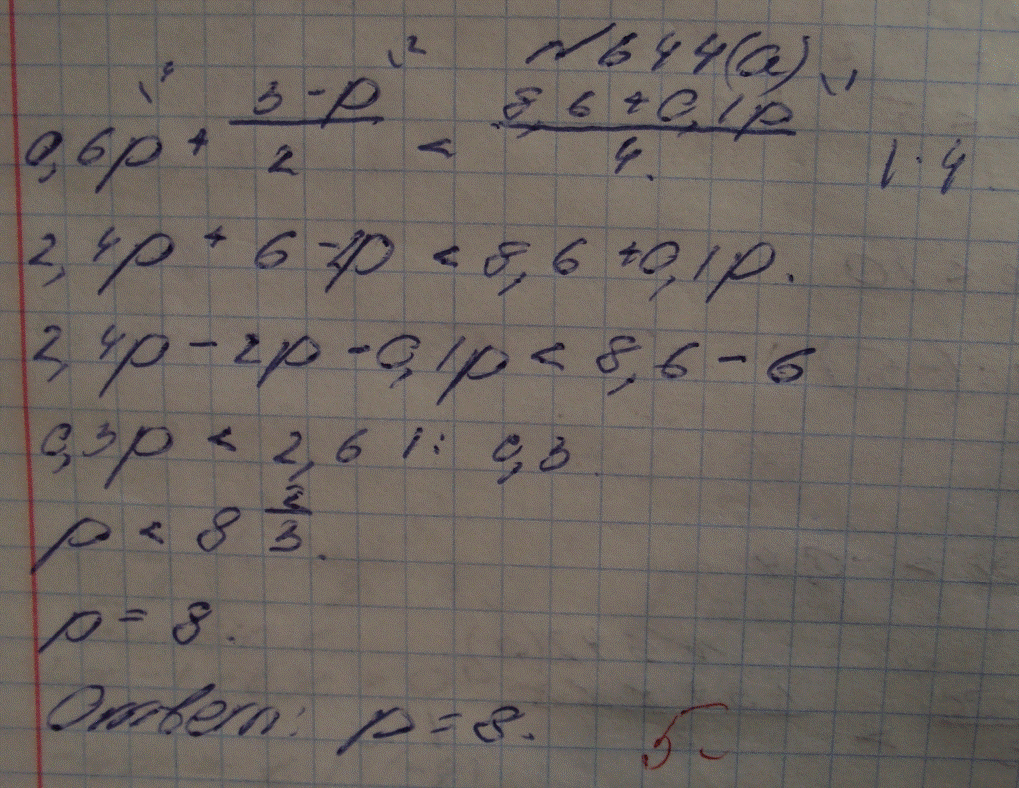 №644(а)
0,6p + \4 (3-p)/2 \2 < (8,6+0,1p)/4 \1 |·4
2,4p + 6 -2p < 8,6 +0,1p.
2,4p - 2p - 0,1p < 8,6 - 6
0,3p < 2,6 |: 0,3
p < 8 2/3.
p = 8.
Ответ: p = 8.
5-